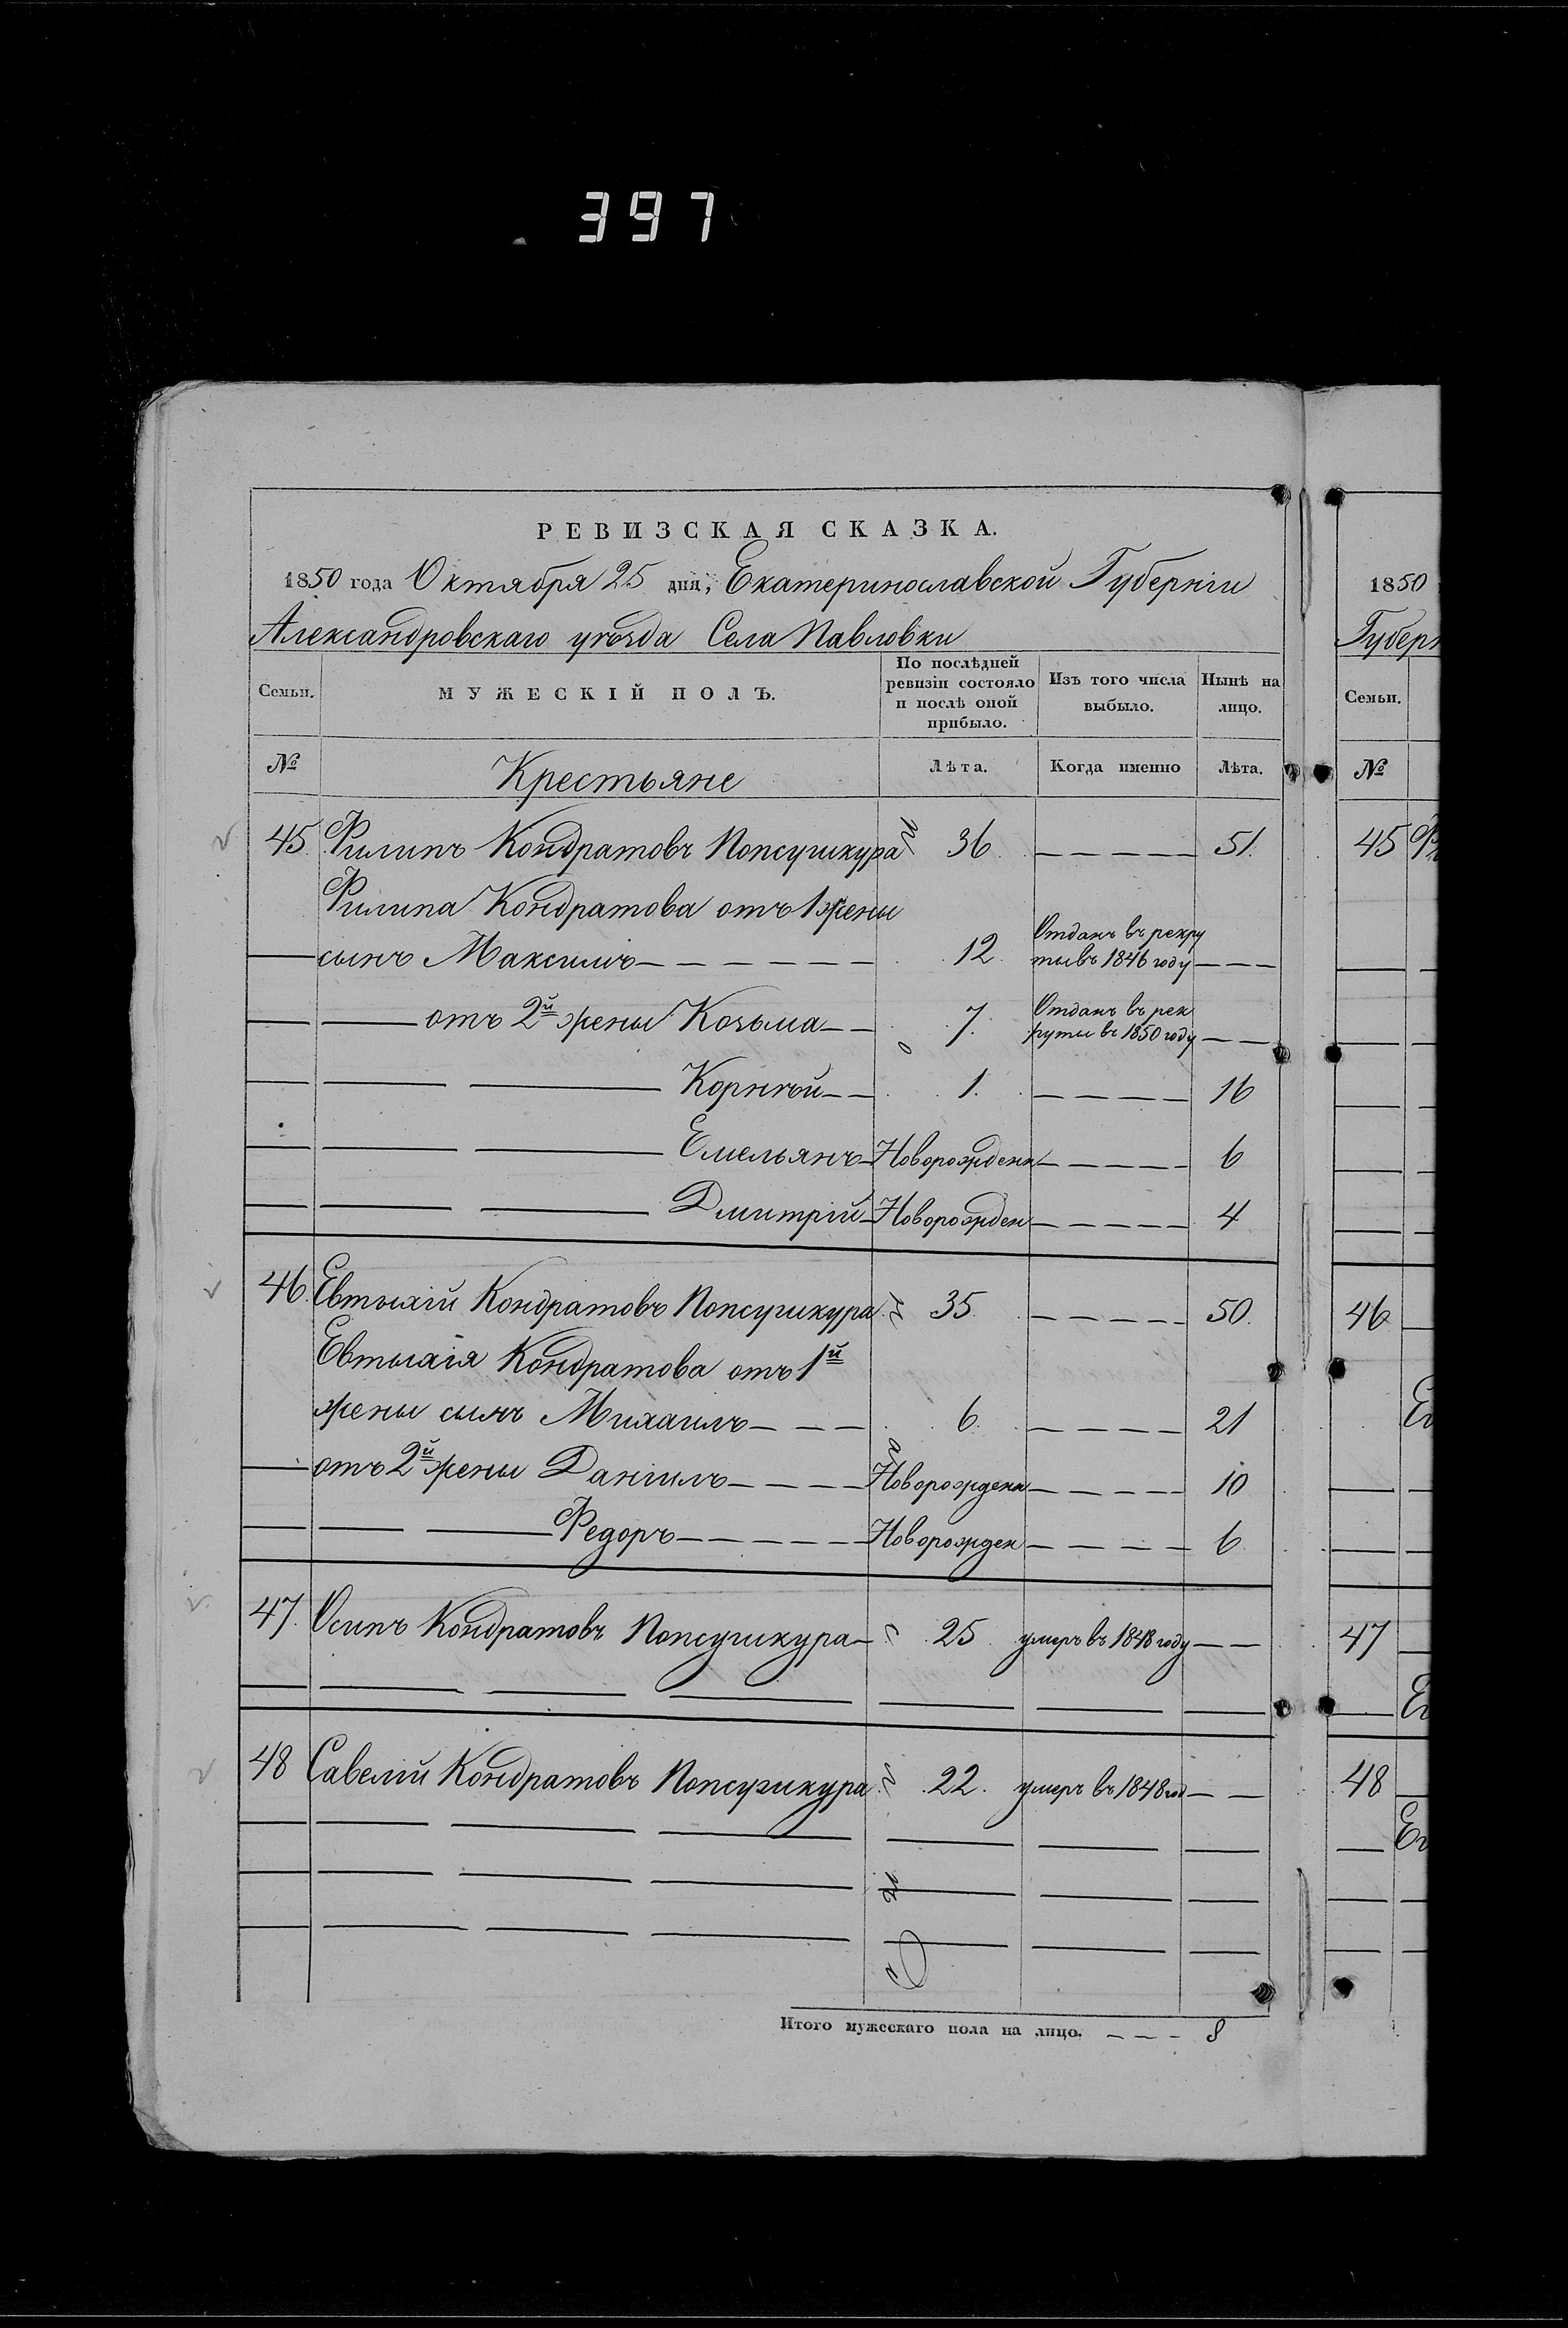 397
РЕВИЗСКАЯ СКАЗКА.
1850 года Октября 25 дня, Екатеринославской Губернiи
Александровскаго уѣзда Села Павловки
Семьи. МУЖЕСКIЙ ПОЛЪ. По послѣдней ревизiи состояло и послѣ оной прибыло. Изъ того числа выбыло. Нынѣ на лицо.
№ Крестьяне Лѣта. Когда именно Лѣта.
45 Филипъ Кондратовъ Попсушкура 36 51.
Филипа Кондратова отъ 1 жены
сынъ Максимъ 12 Отданъ въ рекруты въ 1846 году
отъ 2й жены Козьма 7. Отданъ въ рекруты въ 1850 году
Корнѣй 1. 16
Емельянъ Новорожденн 6
Дмитрiй Новорожден 4
46. Евтихiй Кондратовъ Попсушкура 35 50.
Евтихiя Кондратова отъ 1й
жены сынъ Михаилъ 6 21
отъ 2й жены Данiилъ Новорожденн 10
Федоръ Новорожден 6
47. Осипъ Кондратовъ Попсушкура 25 умеръ въ 1848 году
48 Савелiй Кондратовъ Попсушкура 22. умеръ въ 1848 год
Итого мужескаго пола на лицо. 8
1850
Губерн
Семьи.
№
45
46
47
48